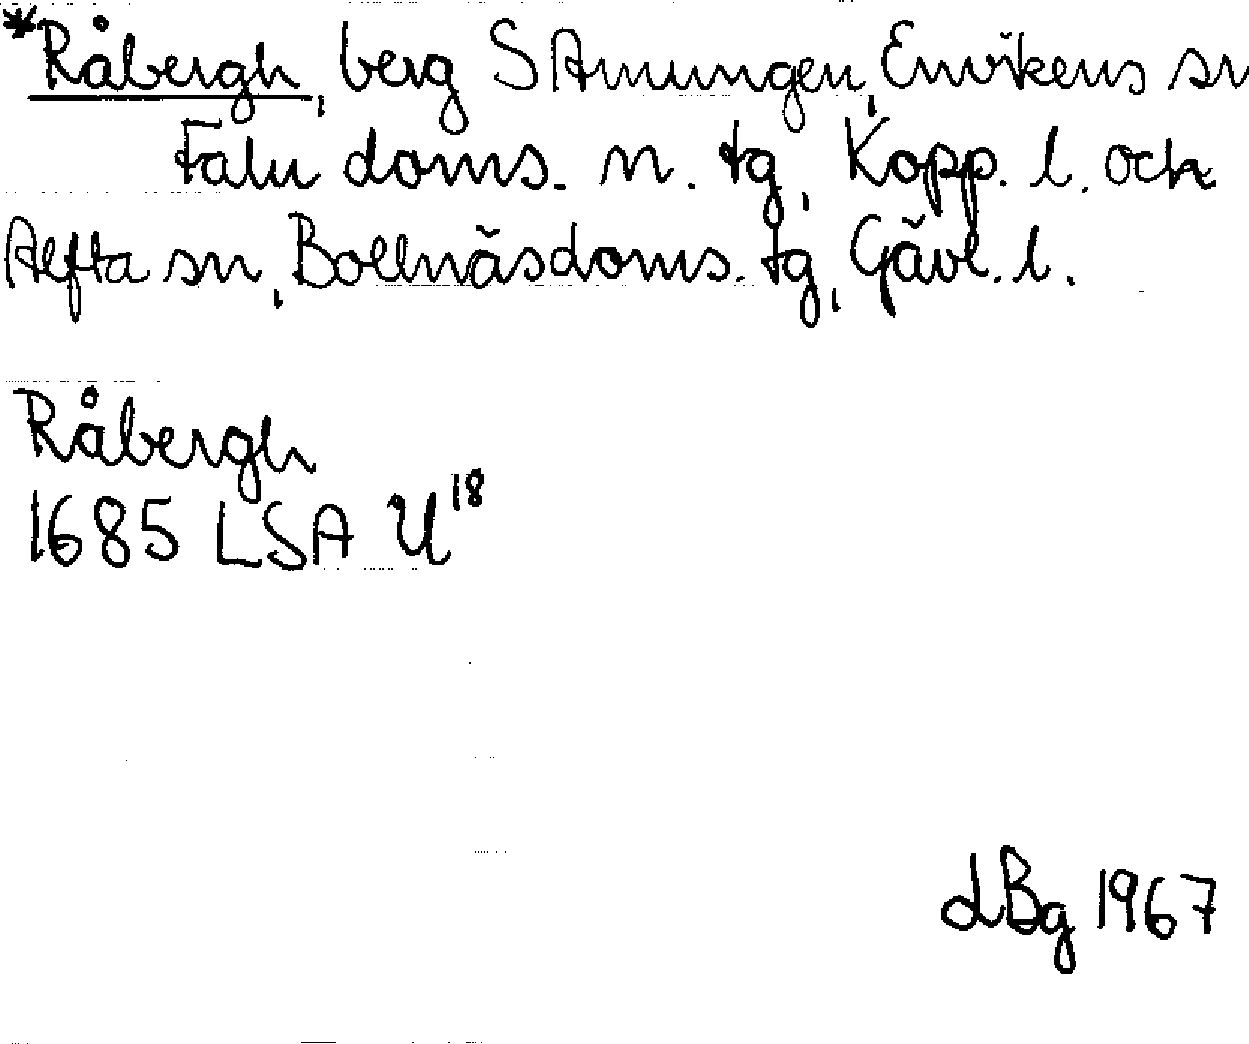 *Råbergh, berg S Amungen, Envikens sn
Falu doms. n. tg, Kopp. l. och
Alfta sn, Bollnäs doms. tg, Gävl. l.
Råbergh
1685 LSA U¹⁸
LBg 1967